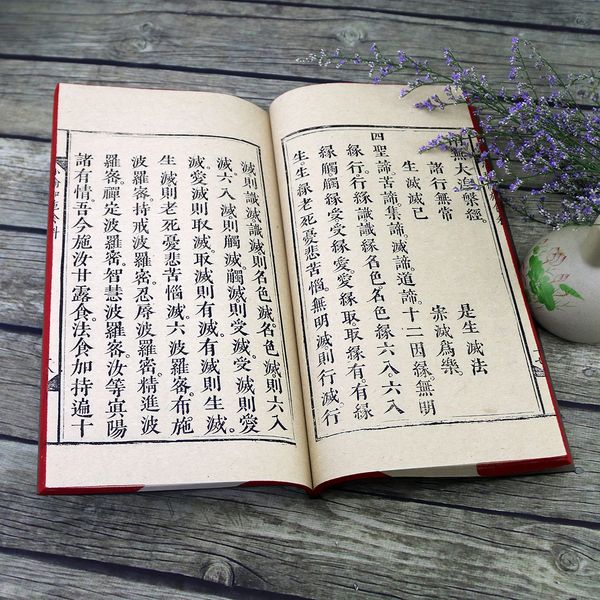 南無大涅槃經。
諸行無常 是生滅法
生滅滅已 寂滅爲樂。
四聖諦。苦諦集諦滅諦。道諦。十二因緣無明
緣行。行緣識識緣名色名色緣六入六入
緣觸觸緣受受緣愛。愛緣取。取緣有。有緣
生。生緣老死憂悲苦惱。無明滅則行滅行
滅則識滅識滅則名色滅。名色滅則六入
滅。六入滅則觸滅。觸滅則受滅。受滅則愛
滅愛滅則取滅取滅則有滅有滅則生滅。
生滅則老死憂悲苦惱滅。六波羅蜜。布施
波羅蜜。持戒波羅蜜。忍辱波羅蜜。精進波
羅蜜。禪定波羅蜜。智慧波羅蜜。汝等冥陽
諸有情。吾今施汝甘露食。法食加持遍十